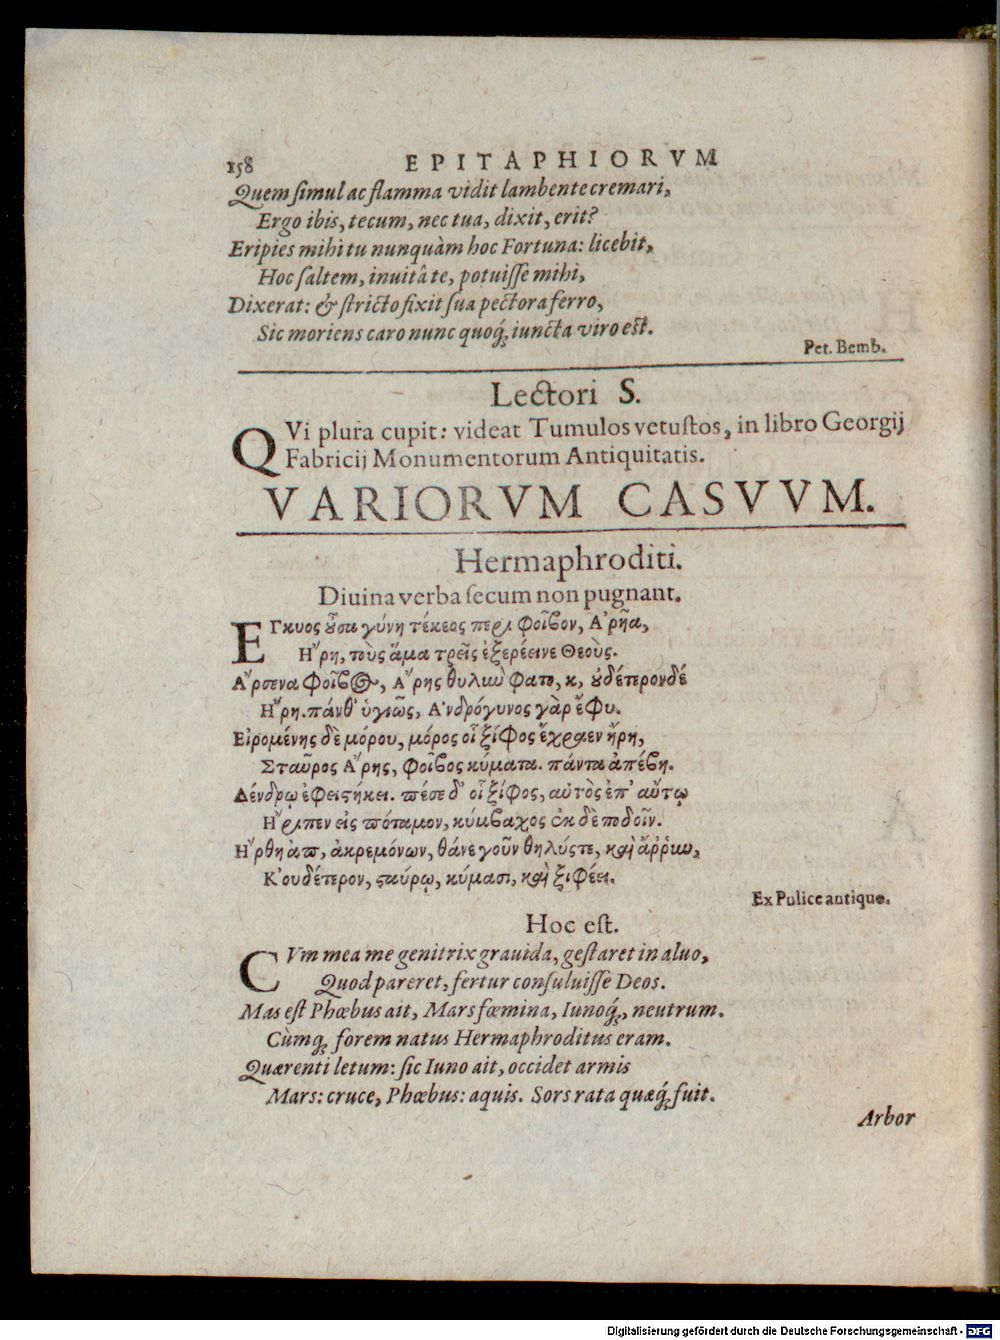 158 EPITAPHIORVM
Quem simul ac flamma vidit lambente cremari,
Ergo ibis, tecum, nec tua, dixit, erit?
Eripies mihi tu nunquàm hoc Fortuna: licebit,
Hoc saltem, inuitâ te, potuisse mihi,
Dixerat: & stricto fixit sua pectora ferro,
Sic moriens caro nunc quoq́; iuncta viro est.
Pet. Bemb.
Lectori S.
QVi plura cupit: videat Tumulos vetustos, in libro Georgij
Fabricij Monumentorum Antiquitatis.
VARIORVM CASVVM.
Hermaphroditi.
Diuina verba secum non pugnant.
ΕΓκυος οὖσα γύνη τέκεος περὶ Φοῖβον, Α᾿ρῆα,
Η῞ρη, τοὺς ἅμα τρεῖς ἐξερέεινε Θεοὺς.
Α῎ρσενα Φοῖβος, Α῎ρης θυλιὼ φατο, κ, οὐδέτερον δέ
Η῞ρη. πάνθ᾽ ὑγιῶς, Α᾿νδρόγυνος γὰρ ἔφυ.
Εἰρομένης δὲ μόρου, μόρος οἷ ξίφος ἔχραεν ἥρη,
Σταῦρος Α῎ρης, Φοῖβος κύματα. πάντα ἀπέβη.
Δένδρῳ ἐφειστήκει. πέσε δ᾽ οἷ ξίφος, αὐτὸς ἐπ᾽ αὔτῳ
Η῎ριπεν εἰς πόταμον, κύμβαχος ἐκ δὲ ποδοῖν.
Η῎ρθη ἀπ, ἀκρεμόνων, θάνε γοῦν θηλύστε, καὶ ἄῤῥιω,
Κ᾿ουδέτερον, σταύρῳ, κύμασι, καὶ ξιφέει.
Ex Pulice antiquo.
Hoc est.
CVm mea me genitrix grauida, gestaret in aluo,
Quod pareret, fertur consuluisse Deos.
Mas est Phœbus ait, Mars fœmina, Iunoq́;, neutrum.
Cùmq; forem natus Hermaphroditus eram.
Quærenti letum: sic Iuno ait, occidet armis
Mars: cruce, Phœbus: aquis. Sors rata quæq́; fuit.
Arbor
Digitalisierung gefördert durch die Deutsche Forschungsgemeinschaft - DFG